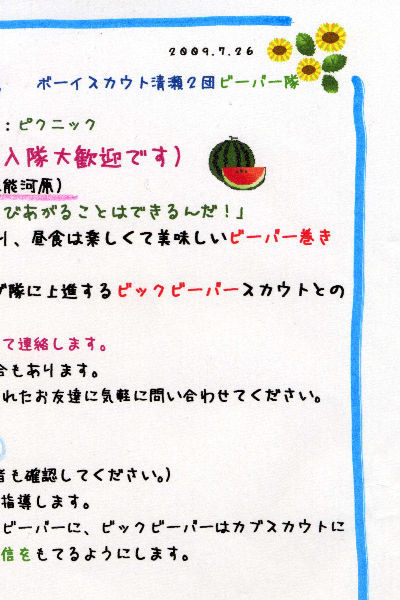 2009.7.26
ボーイスカウト清瀬2団ビーバー隊
：ピクニック
入隊大歓迎です）
能河原）
びあがることはできるんだ！」
り、昼食は楽しくて美味しいビーバー巻き
ブ隊に上進するビックビーバースカウトとの
て連絡します。
合もあります。
れたお友達に気軽に問い合わせてください。
者も確認してください。）
指導します。
ビーバーに、ビックビーバーはカブスカウトに
信をもてるようにします。